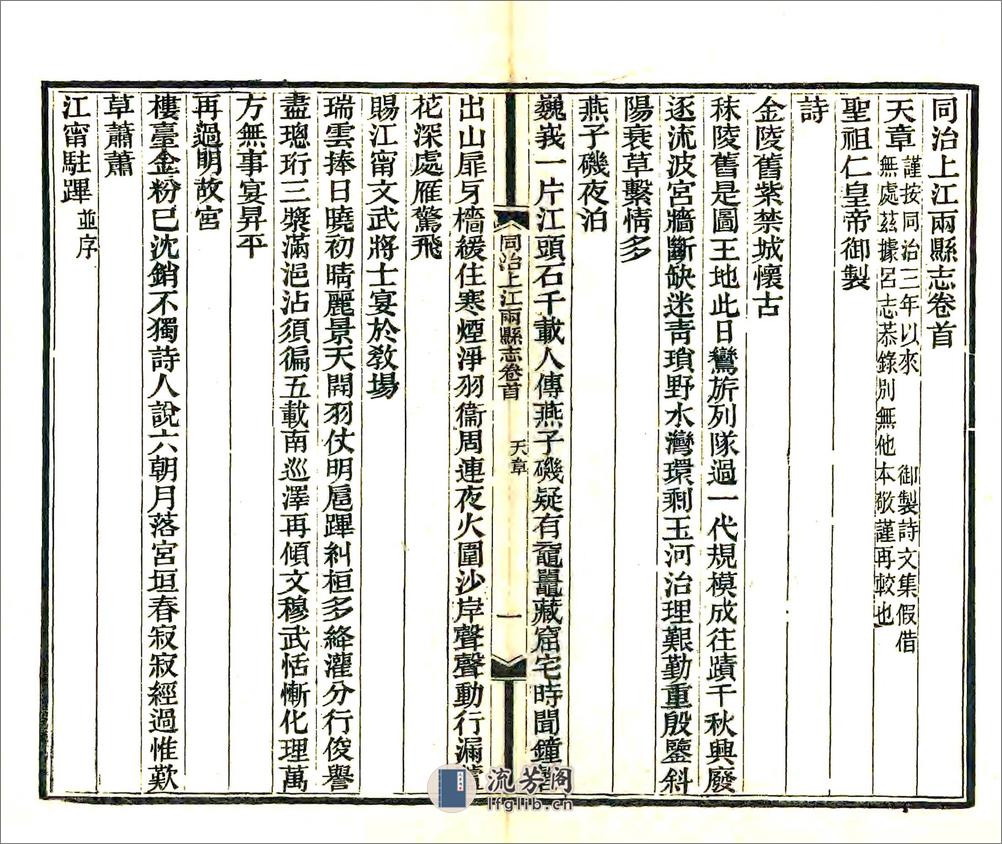 同治上江兩縣志卷首
天章 謹按同治三年以來 御製詩文集假借
無處茲據呂志恭錄別無他本敬謹再較也
聖祖仁皇帝御製
詩
金陵舊紫禁城懷古
秣陵舊是圖王地此日鸞旂列隊過一代規模成往蹟千秋興廢
逐流波宮牆斷缺迷靑瑣野水灣環剩玉河治理艱勤重殷鑒斜
陽衰草繫情多
燕子磯夜泊
巍峩一片江頭石千載人傳燕子磯疑有黿鼉藏窟宅時聞鐘
同治上江兩縣志卷首 天章 一
出山扉牙檣緩住寒煙淨羽衞周連夜火圍沙岸聲聲動行漏
花深處雁驚飛
賜江甯文武將士宴於敎場
瑞雲捧日曉初晴麗景天開羽仗明扈蹕糾桓多絳灌分行俊譽
盡璁珩三漿滿浥沾須徧五載南巡澤再傾文穆武恬慚化理萬
方無事宴昇平
再過明故宮
樓臺金粉已沈銷不獨詩人說六朝月落宮垣春寂寂經過惟歎
草蕭蕭
江甯駐蹕 並序
流芳阁
lfglib.cn